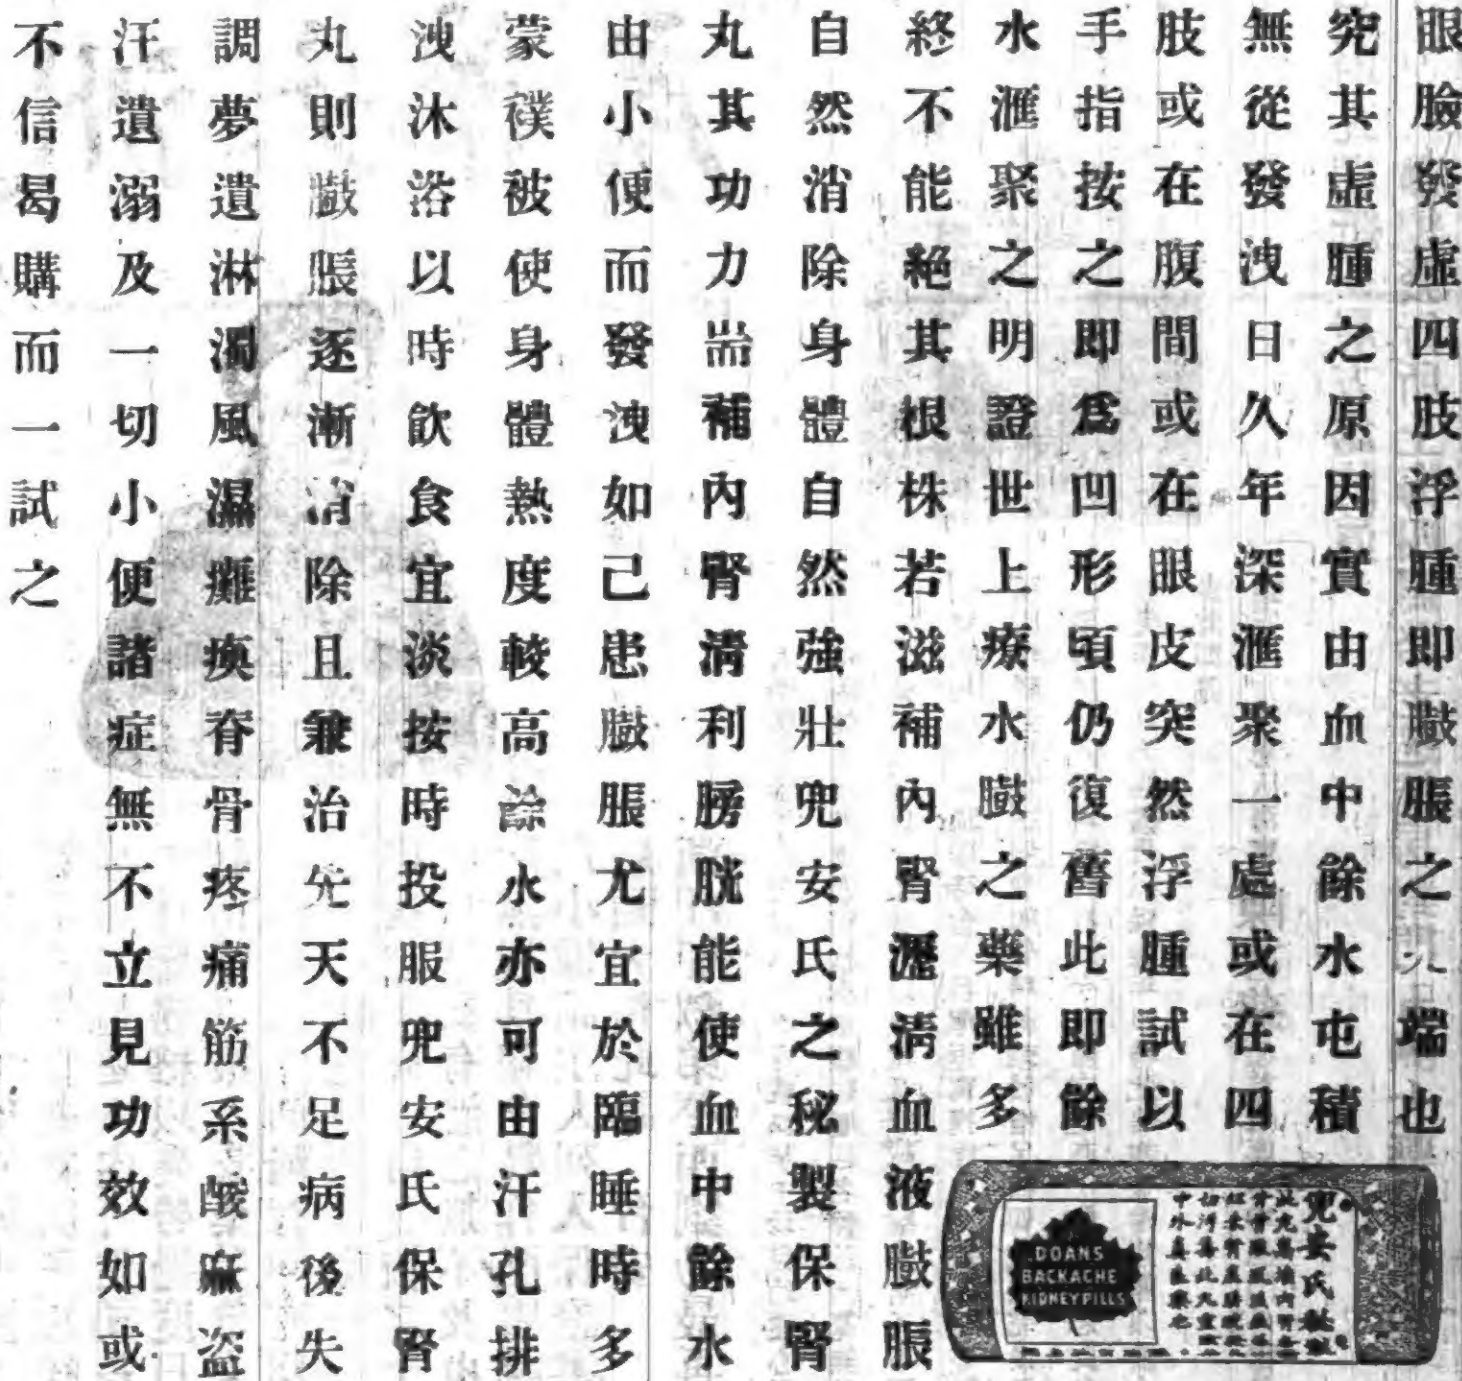 眼臉發虛四肢浮腫即臌脹之端也
究其虛腫之原因實由血中餘水屯積
無從發洩日久年深滙聚一處或在四
肢或在腹間或在眼皮突然浮腫試以
手指按之即爲凹形頃仍復舊此即餘
水滙聚之明證世上療水臌之藥雖多
終不能絕其根株若滋補內腎瀝淸血液臌脹
自然消除身體自然強壯兜安氏之秘製保腎
丸其功力耑補內腎淸利膀胱能使血中餘水
由小便而發洩如己患臌脹尤宜於臨睡時多
蒙襆被使身體熱度較高餘水亦可由汗孔排
洩沐浴以時飲食宜淡按時投服兜安氏保腎
丸則臌脹逐漸消除且兼治先天不足病後失
調夢遺淋濁風濕癱瘓脊骨疼痛筋系酸麻盜
汗遺溺及一切小便諸症無不立見功效如或
不信曷購而一試之
兜安氏秘製
DOANS
BACKACHE
KIDNEY PILLS